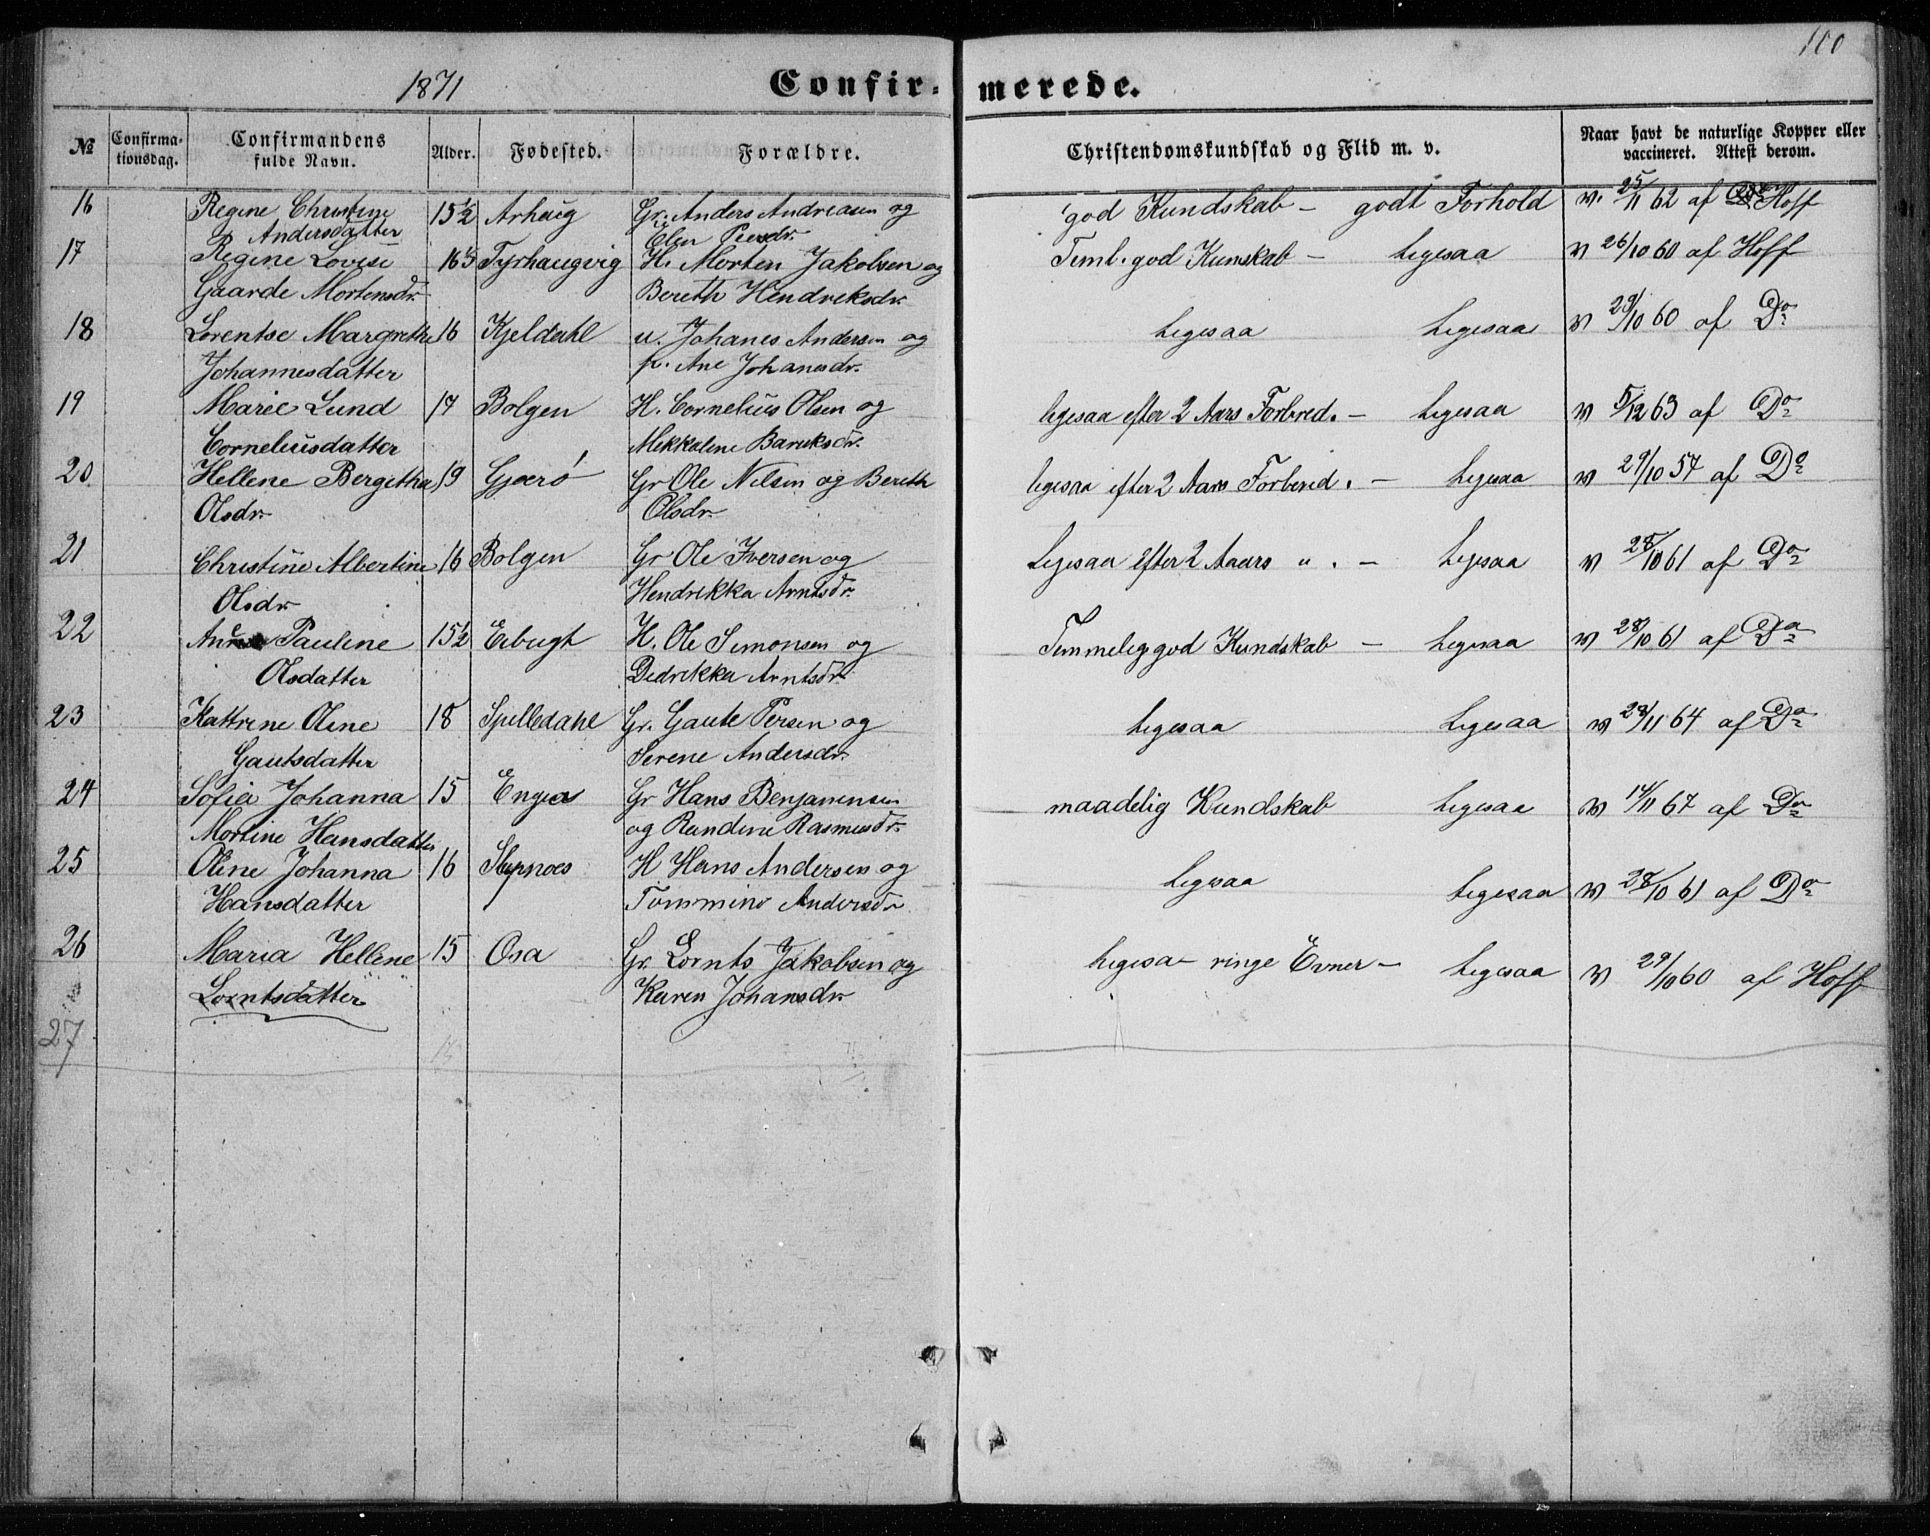 100
1871
Confir-merede.
№ Confirma-tionsdag. Confirmandens fulde Navn. Alder. Fødested. Forældre. Christendomskundskab og Flid m. v. Naar havt de naturlige Kopper eller vaccineret. Attest derom.
16 Regine Christine 15½ Arhaug Gr. Anders Andreasen og god Kundskab - godt Forhold v. 25/11 62 af Hoff
Andersdatter Elen Peersdr.
17 Regine Lovise 16½ Tyrhaugvig H. Morten Jakobsen og Teml. god Kunskab - Ligesaa v 26/10 60 af Hoff
Gaarde Mortensdr. Bereth Hendreksdr.
18 Lorentse Margrethe 16 Kjeldahl u. Johanes Andersen og Ligesaa Ligesaa v 29/10 60 af Do
Johannesdatter p. Ane Johanesdr.
19 Marie Lund 17 Bolgen H. Cornelius Olsen og ligesaa efter 2 Aars Forbred. - Ligesaa v 5/12 63 af Do
Corneliusdatter Mekkaline Baruksdr.
20 Hellene Bergetha 19 Gjærø Gr Ole Nelsen og Bereth ligesaa efter 2 Aars Forbered. - Ligesaa v 29/10 57 af Do
Olsdr. Olsdr.
21 Christine Albertine 16 Bolgen Gr Ole Iversen og Ligesaa efter 2 Aaars " . - Ligesaa v 28/10 61 af Do
Olsdr Hendrikka Arntsdr.
22 Ane Pauline 15½ Eibugt H. Ole Simonsen og Temmelig god Kundskab - Ligesaa v 28/10 61 af Do
Olsdatter Dedrikka Arntsdr.
23 Kattrine Oline 18 Spilledahl Gr. Gaute Persen og Ligesaa Ligesaa v 28/11 64 af Do
Gautsdatter Serene Andersdr.
24 Sofia Johanna 15 Engea Gr Hans Benjamensen maadelig Kundskab Ligesaa v 14/11 67 af Do
Mortine Hansdatter og Randine Rasmusdr.
25 Oline Johanna 16 Skypnoes H Hans Andersen og Ligesaa Ligesaa v 28/10 61 af Do
Hansdatter Tommine Andersdr
26 Maria Hellene 15 Osa Gr. Lornts Jakobsen og Ligesaa - ringe Evner - Ligesaa v 29/10 60 af Hoff
Lorntsdatter Karen Johansdr
27